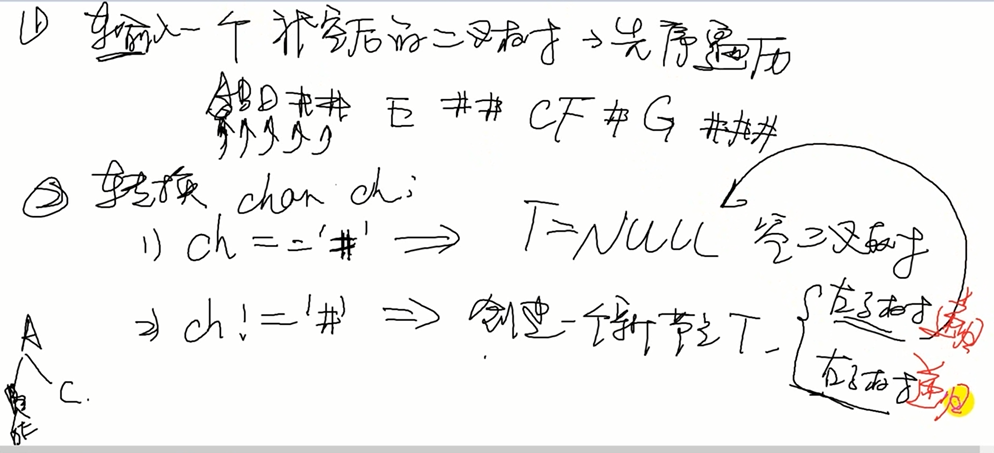 ① 输入一个补空后的二叉树→先序遍历
ABD## E ## CF#G ###
② 转换 char ch;
1) ch=='#' ⇒ T=NULL 空二叉树
2) ch!='#' ⇒ 创建一个新节点T
左子树 递归
右子树 递归
A
C